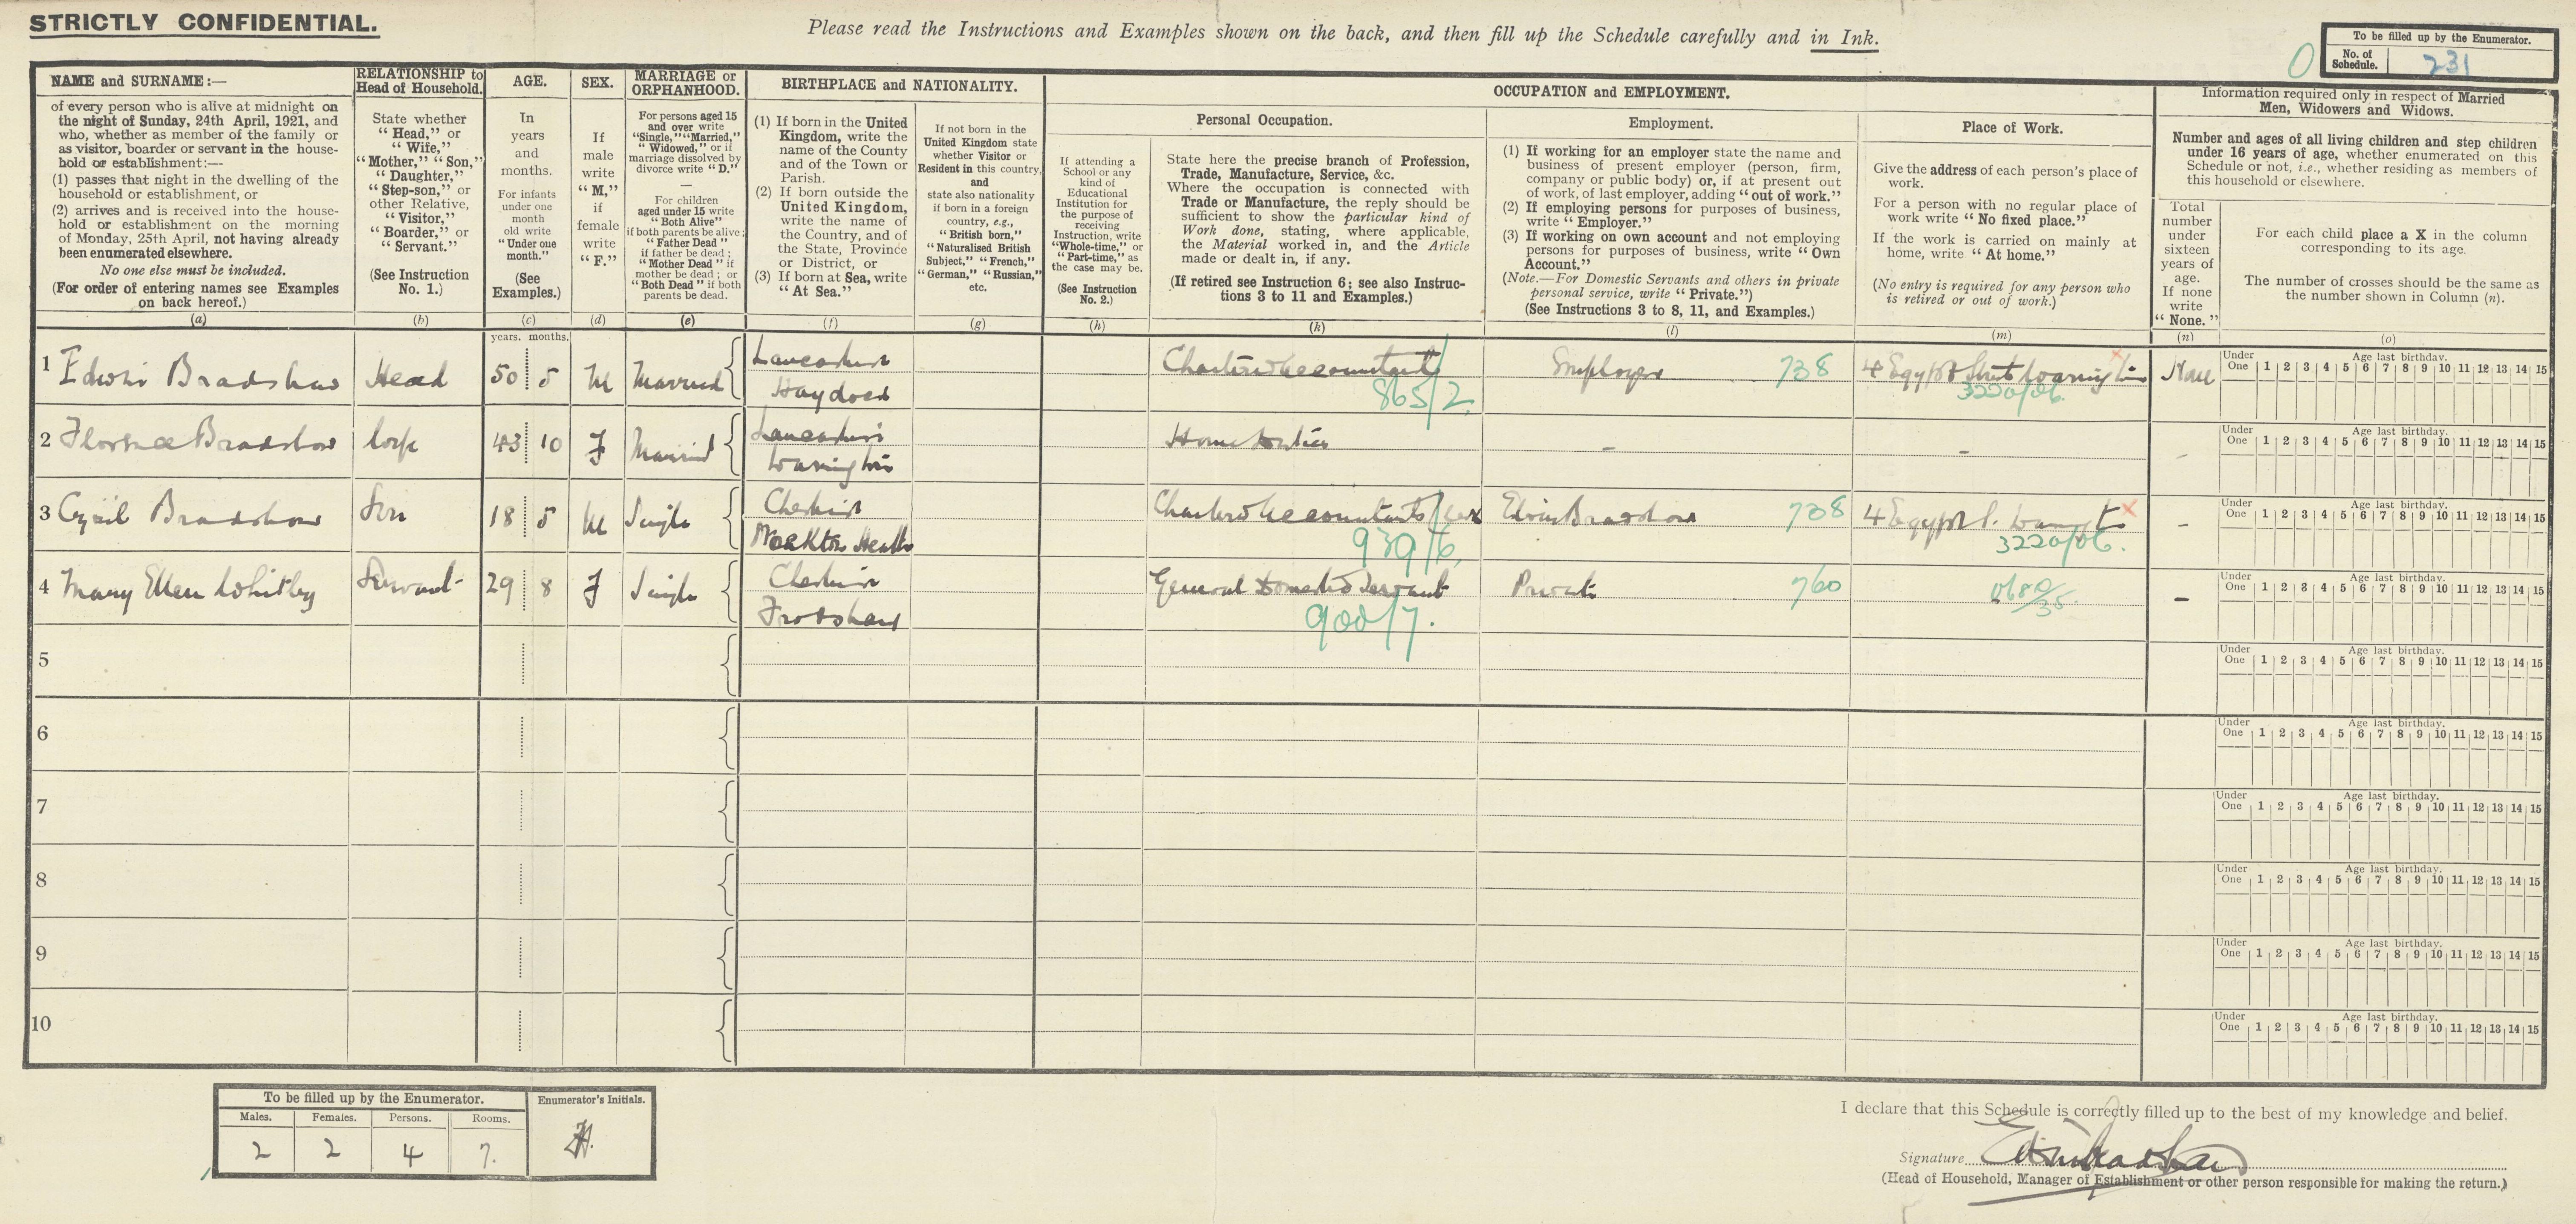 STRICTLY CONFIDENTIAL.
Please read the Instructions and Examples shown on the back, and then fill up the Schedule carefully and in Ink.
To be filled up by the Enumerator.
No. of Schedule. 231
NAME and SURNAME:—
of every person who is alive at midnight on
the night of Sunday, 24th April, 1921, and
who, whether as member of the family or
as visitor, boarder or servant in the house-
hold or establishment:—
(1) passes that night in the dwelling of the
household or establishment, or
(2) arrives and is received into the house-
hold or establishment on the morning
of Monday, 25th April, not having already
been enumerated elsewhere.
No one else must be included.
(For order of entering names see Examples
on back hereof.)
(a)
RELATIONSHIP to
Head of Household.
State whether
"Head," or
"Wife,"
"Mother," "Son,"
"Daughter,"
"Step-son," or
other Relative,
"Visitor,"
"Boarder," or
"Servant."
(See Instruction
No. 1.)
(b)
AGE.
In
years
and
months.
For infants
under one
month
old write
"Under one
month."
(See
Examples.)
(c)
SEX.
If
male
write
"M,"
if
female
write
"F."
(d)
MARRIAGE or
ORPHANHOOD.
For persons aged 15
and over write
"Single," "Married,"
"Widowed," or if
marriage dissolved by
divorce write "D."
—
For children
aged under 15 write
"Both Alive"
if both parents be alive;
"Father Dead"
if father be dead;
"Mother Dead" if
mother be dead; or
"Both Dead" if both
parents be dead.
(e)
BIRTHPLACE and NATIONALITY.
(1) If born in the United
Kingdom, write the
name of the County
and of the Town or
Parish.
(2) If born outside the
United Kingdom,
write the name of
the Country, and of
the State, Province
or District, or
(3) If born at Sea, write
"At Sea."
(f)
If not born in the
United Kingdom state
whether Visitor or
Resident in this country,
and
state also nationality
if born in a foreign
country, e.g.,
"British born,"
"Naturalised British
Subject," "French,"
"German," "Russian,"
etc.
(g)
OCCUPATION and EMPLOYMENT.
Personal Occupation.
If attending a
School or any
kind of
Educational
Institution for
the purpose of
receiving
Instruction, write
"Whole-time," or
"Part-time," as
the case may be.
(See Instruction
No. 2.)
(h)
State here the precise branch of Profession,
Trade, Manufacture, Service, &c.
Where the occupation is connected with
Trade or Manufacture, the reply should be
sufficient to show the particular kind of
Work done, stating, where applicable,
the Material worked in, and the Article
made or dealt in, if any.
(If retired see Instruction 6; see also Instruc-
tions 3 to 11 and Examples.)
(k)
Employment.
(1) If working for an employer state the name and
business of present employer (person, firm,
company or public body) or, if at present out
of work, of last employer, adding "out of work."
(2) If employing persons for purposes of business,
write "Employer."
(3) If working on own account and not employing
persons for purposes of business, write "Own
Account."
(Note.—For Domestic Servants and others in private
personal service, write "Private.")
(See Instructions 3 to 8, 11, and Examples.)
(l)
Place of Work.
Give the address of each person's place of
work.
For a person with no regular place of
work write "No fixed place."
If the work is carried on mainly at
home, write "At home."
(No entry is required for any person who
is retired or out of work.)
(m)
Information required only in respect of Married
Men, Widowers and Widows.
Number and ages of all living children and step children
under 16 years of age, whether enumerated on this
Schedule or not, i.e., whether residing as members of
this household or elsewhere.
Total
number
under
sixteen
years of
age.
If none
write
"None."
(n)
For each child place a X in the column
corresponding to its age.
The number of crosses should be the same as
the number shown in Column (n).
(o)
years. months.
1 Edwin Bradshaw Head 50 5 M Married Lancashire Haydock Chartered Accountant 865/2 Employer 738 4 Egypt Street Warrington 3220/06 None
Under One Age last birthday. 1 2 3 4 5 6 7 8 9 10 11 12 13 14 15
2 Florence Bradshaw Wife 43 10 F Married Lancashire Warrington Home Duties - - -
Under One Age last birthday. 1 2 3 4 5 6 7 8 9 10 11 12 13 14 15
3 Cyril Bradshaw Son 18 5 M Single Cheshire Stockton Heath Chartered Accountants 939/6 Edwin Bradshaw 738 4 Egypt S. 3220/06. -
Under One Age last birthday. 1 2 3 4 5 6 7 8 9 10 11 12 13 14 15
4 Mary Ellen Whitley Servant 29 8 F Single Cheshire Frodsham General Domestic Servant 900/7. Private 760 -
Under One Age last birthday. 1 2 3 4 5 6 7 8 9 10 11 12 13 14 15
5
Under One Age last birthday. 1 2 3 4 5 6 7 8 9 10 11 12 13 14 15
6
Under One Age last birthday. 1 2 3 4 5 6 7 8 9 10 11 12 13 14 15
7
Under One Age last birthday. 1 2 3 4 5 6 7 8 9 10 11 12 13 14 15
8
Under One Age last birthday. 1 2 3 4 5 6 7 8 9 10 11 12 13 14 15
9
Under One Age last birthday. 1 2 3 4 5 6 7 8 9 10 11 12 13 14 15
10
Under One Age last birthday. 1 2 3 4 5 6 7 8 9 10 11 12 13 14 15
To be filled up by the Enumerator. Enumerator's Initials.
Males. Females. Persons. Rooms.
2 2 4 7.
I declare that this Schedule is correctly filled up to the best of my knowledge and belief.
Signature Edwin Bradshaw
(Head of Household, Manager of Establishment or other person responsible for making the return.)